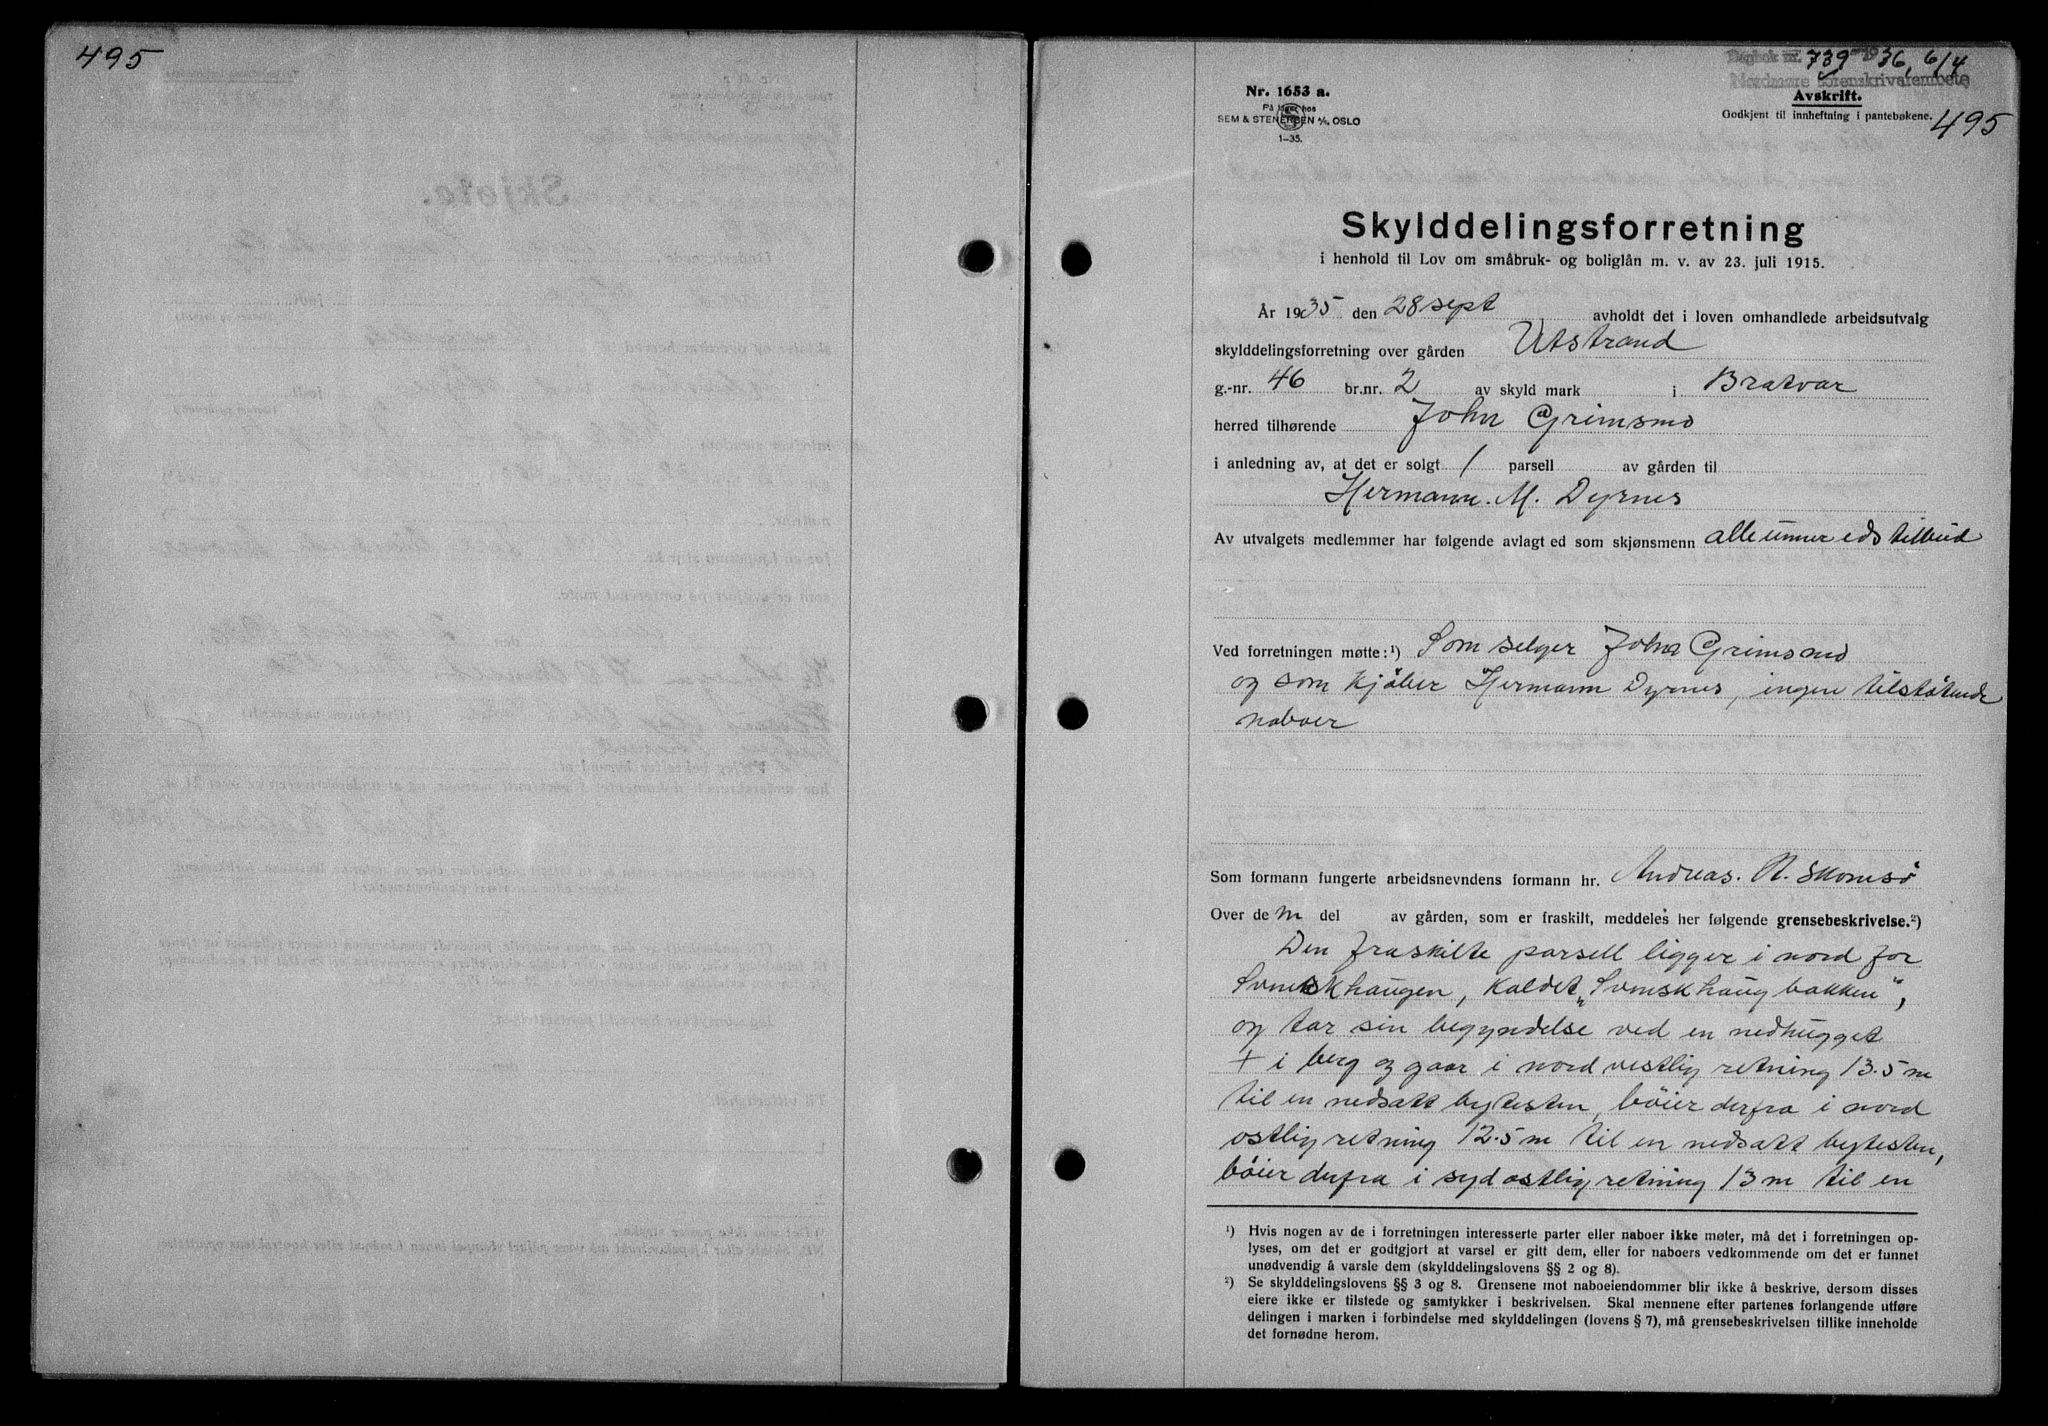 495
Dagbok nr. 739 - 1936, 6/4
Nordmøre sorenskriverembete
Nr. 1653 a.
På lager hos
SEM & STENERSEN A/S, OSLO
1—35.
Avskrift.
Godkjent til innheftning i pantebøkene.
495
Skylddelingsforretning
i henhold til Lov om småbruk- og boliglån m. v. av 23. juli 1915.
År 1935 den 28 sept avholdt det i loven omhandlede arbeidsutvalg
skylddelingsforretning over gården Utstrand
g.-nr. 46 br.nr. 2 av skyld mark i Bratvær
herred tilhørende John Grimsmo
i anledning av, at det er solgt 1 parsell av gården til
Hermann. M. Dyrnes
Av utvalgets medlemmer har følgende avlagt ed som skjønsmenn alle unner eds tilbud
Ved forretningen møtte:¹) Som selger John Grimsmo
og som kjøber Hermann Dyrnes, ingen tilstøtende
naboer
Som formann fungerte arbeidsnevndens formann hr. Andreas. A. Skomsø
Over dem del av gården, som er fraskilt, meddeles her følgende grensebeskrivelse.²)
Den fraskilte parsell ligger i nord for
Svenskhaugen, kaldet „Svenskhaugbakken",
og tar sin begyndelse ved en nedhugget
+ i berg og gaar i nord vestlig retning 13.5 m
til en nedsatt bytesten, bøier derfra i nord
ostlig retning 12.5 m til en nedsatt bytesten,
bøier derfra i syd ostlig retning 13 m til en
¹) Hvis nogen av de i forretningen interesserte parter eller naboer ikke møter, må det i forretningen op-
lyses, om det er godtgjort at varsel er gitt dem, eller for naboers vedkommende om det er funnet
unødvendig å varsle dem (skylddelingslovens §§ 2 og 8).
²) Se skylddelingslovens §§ 3 og 8. Grensene mot naboeiendommer blir ikke å beskrive, dersom disses
eiere ikke er tilstede og samtykker i beskrivelsen. Skal mennene efter partenes forlangende utføre
delingen i marken i forbindelse med skylddelingen (lovens § 7), må grensebeskrivelsen tillike inneholde
det fornødne herom.